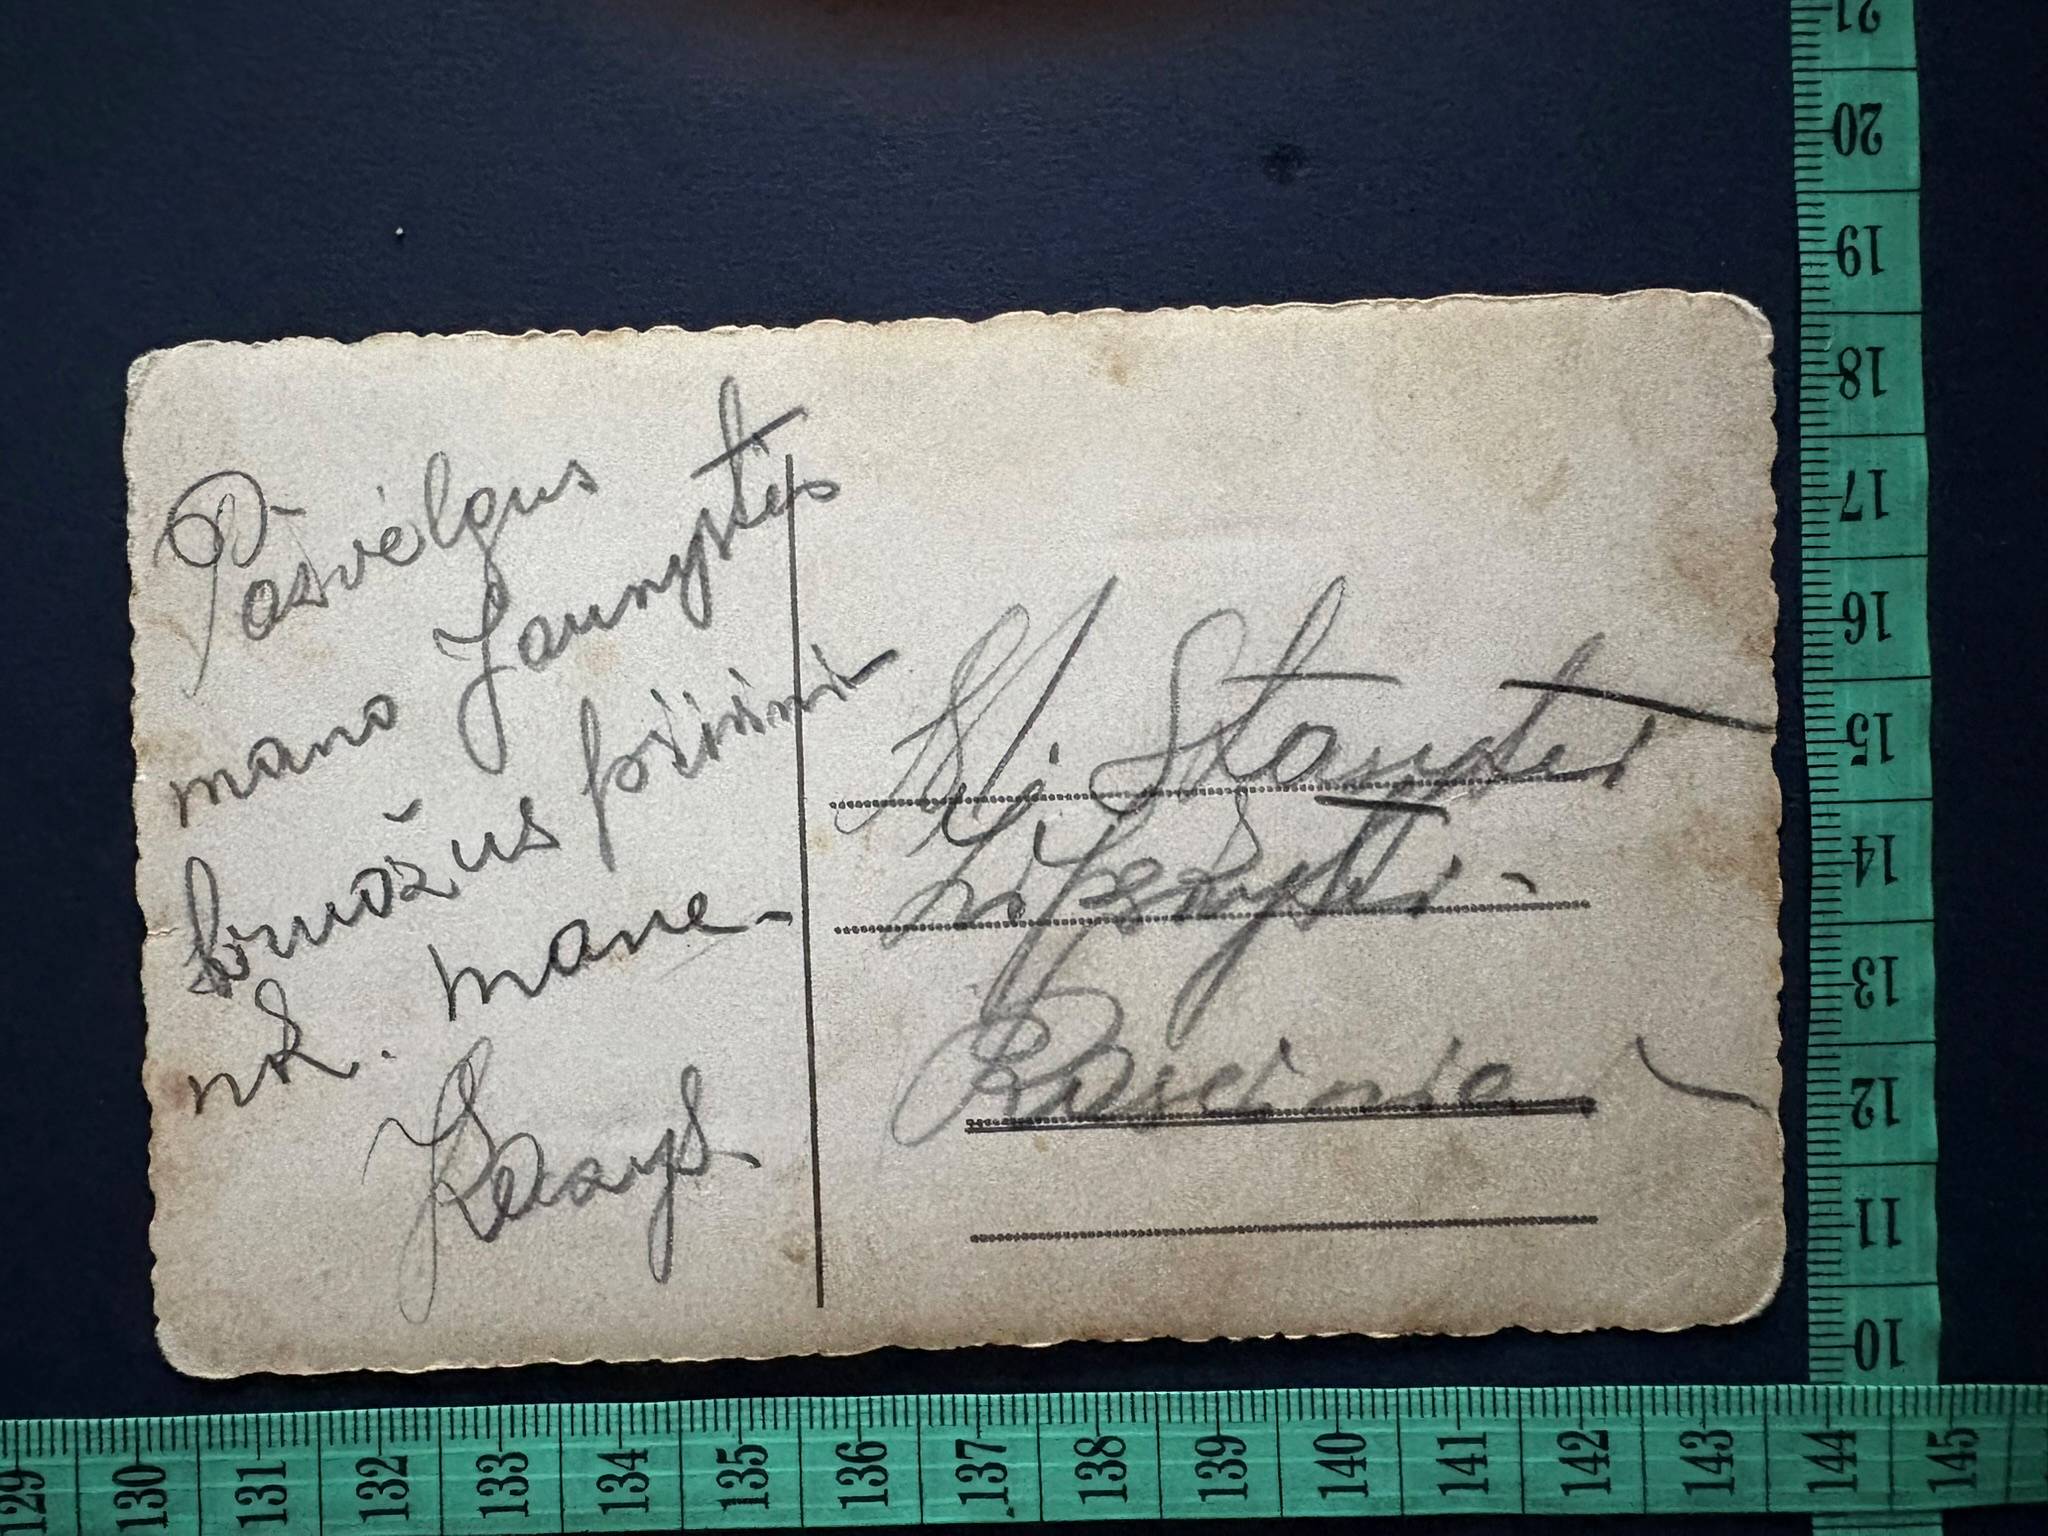 Pasvelgus
mano Jaunystės
bruožus prisimi
nk. mane-
Kazys
St.
Raseiniai
21
20
19
18
17
16
15
14
13
12
11
10
129 130 131 132 133 134 135 136 137 138 139 140 141 142 143 144 145